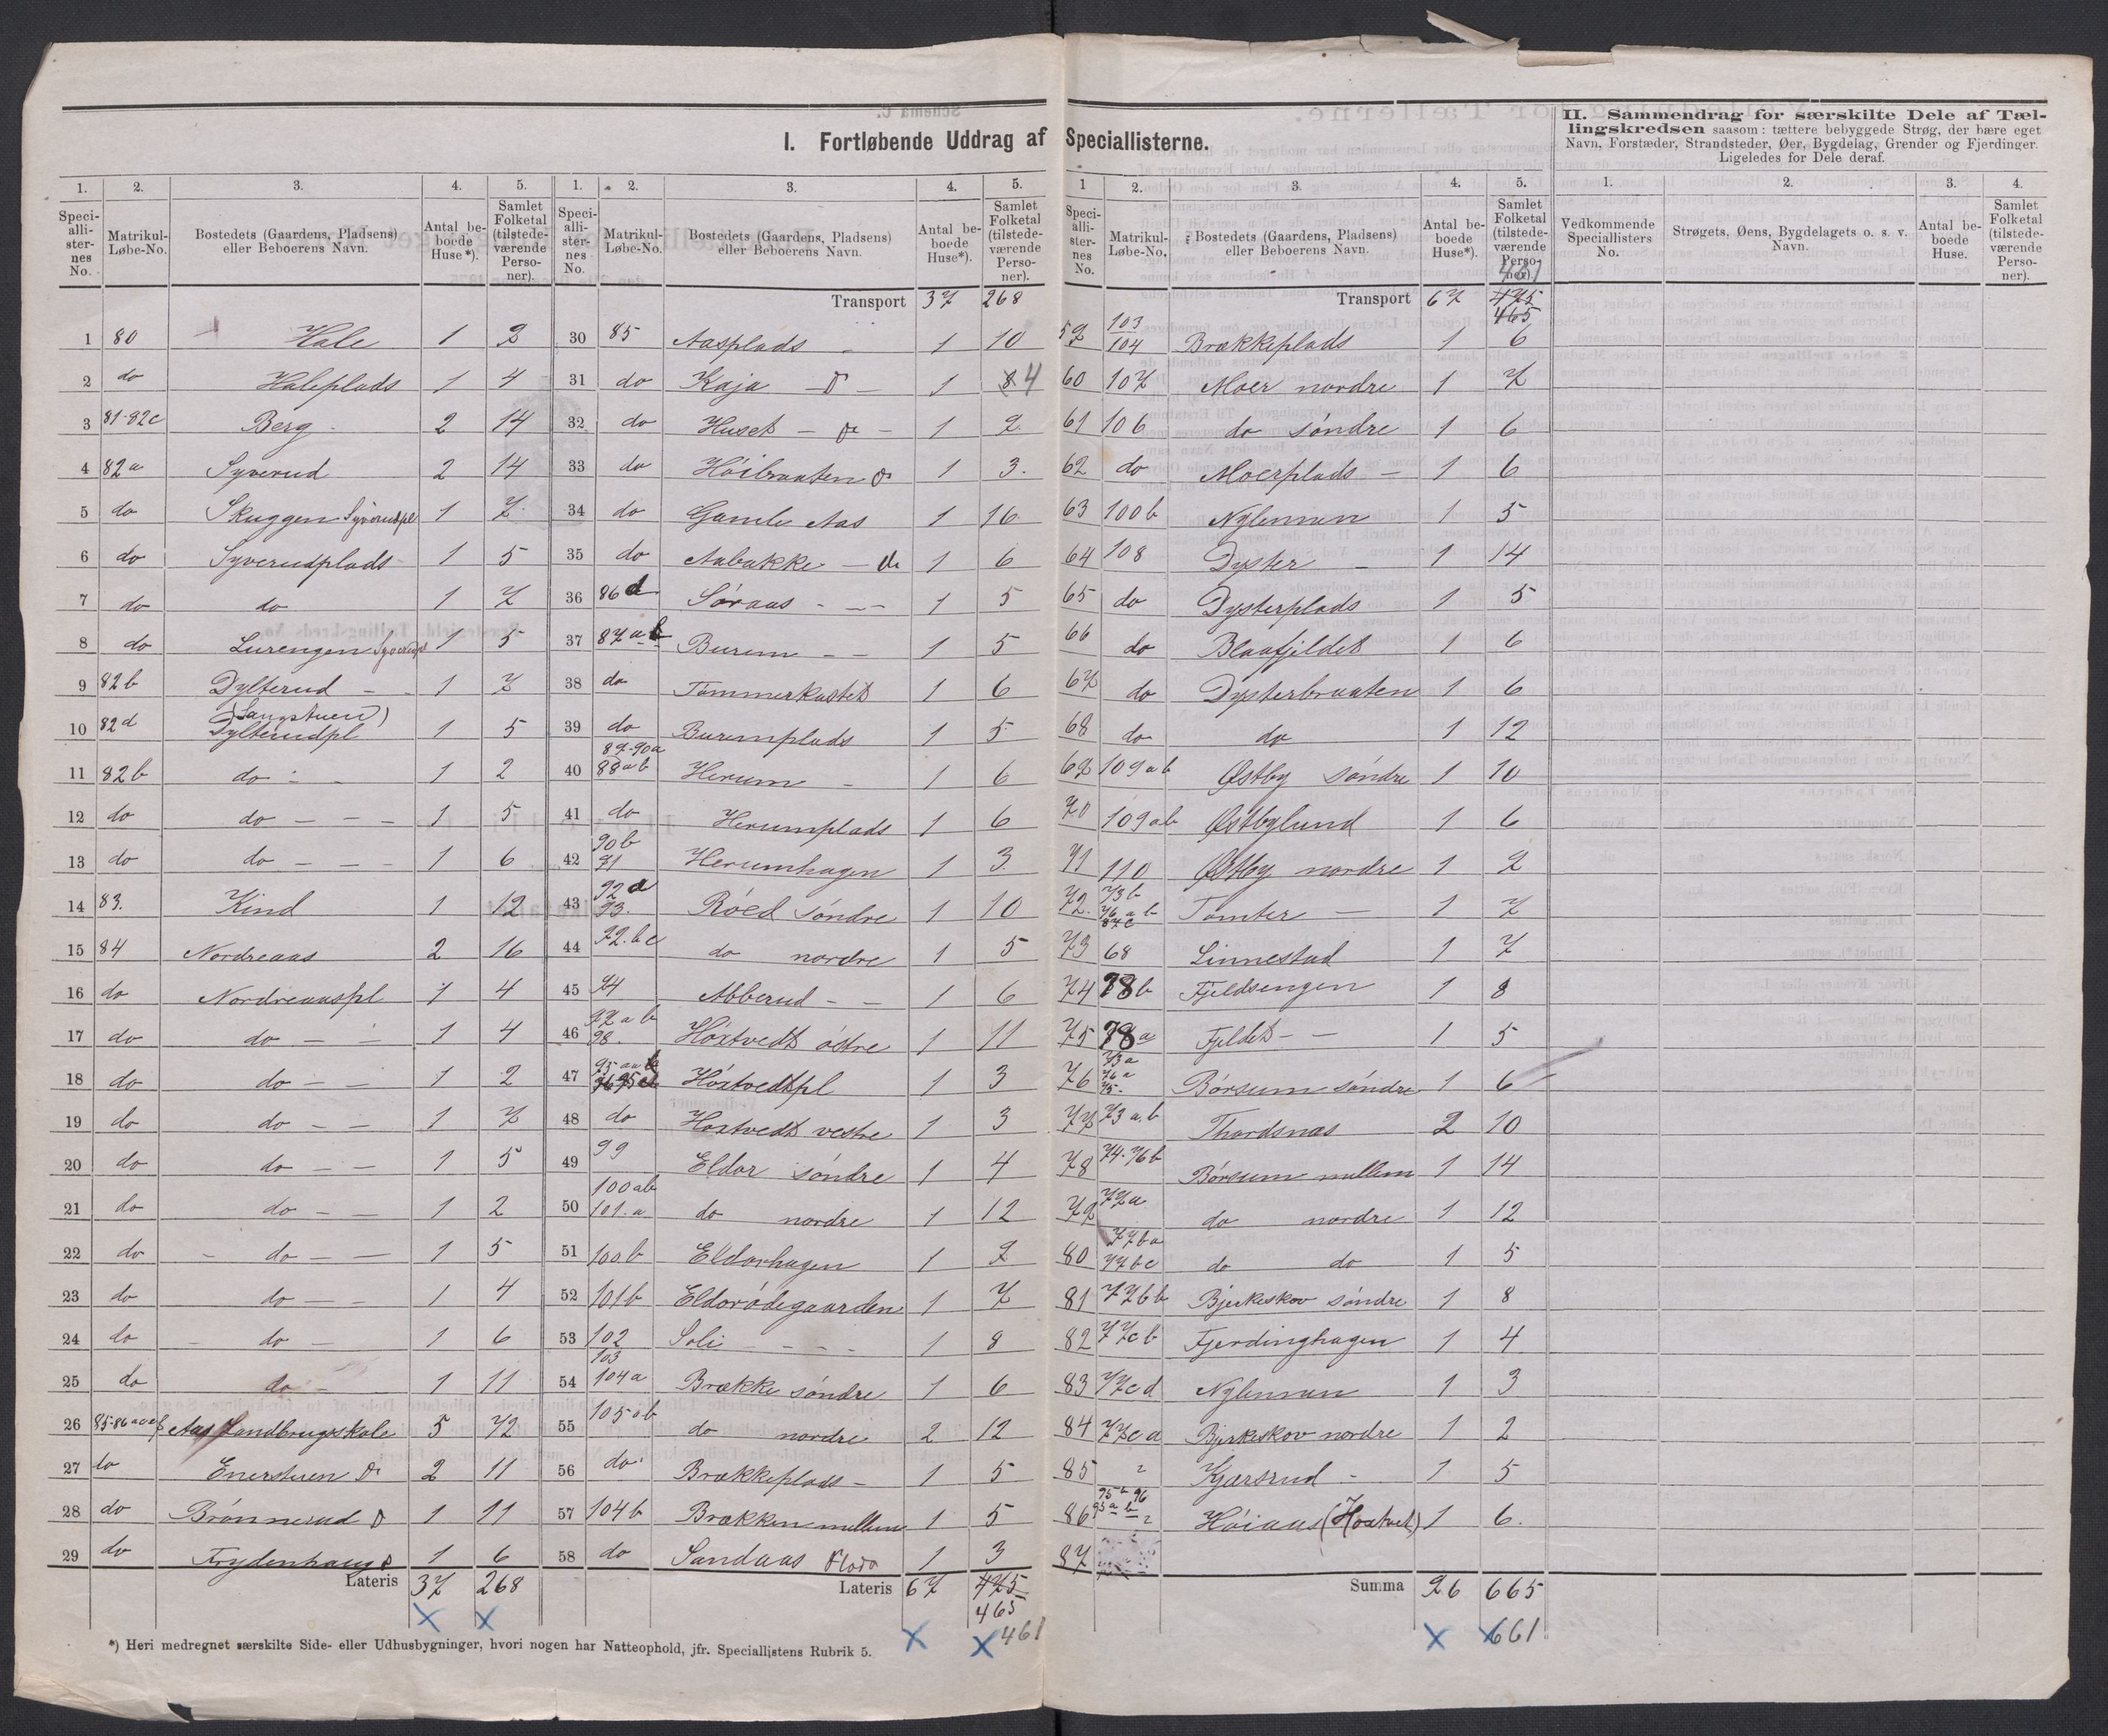 I. Fortløbende Uddrag af Speciallisterne.
II. Sammendrag for særskilte Dele af Tæl-
lingskredsen saasom: tættere bebyggede Strøg, der bære eget
Navn, Forstæder, Strandsteder, Øer, Bygdelag, Grender og Fjerdinger.
Ligeledes for Dele deraf.
1. 2. 3. 4. 5.
Speci-alli-ster-nes No. Matrikul-Løbe-No. Bostedets (Gaardens, Pladsens) eller Beboerens Navn. Antal be-boede Huse*). Samlet Folketal (tilstede-værende Perso-ner).
1 80 Hale 1 2
2 do Haleplads 1 4
3 81-82c Berg 2 14
4 82a Syverud 2 14
5 do Skuggen Syverudpl 1 7
6 do Syverudplads 1 5
7 do do 1 7
8 do Lurengen Syverudpl 1 5
9 82b Dylterud - 1 7
10 82d (Langstuen) Dylterudpl 1 5
11 82b do - 1 2
12 do do - - - 1 5
13 do do - - - 1 6
14 83. Kind 1 12
15 84 Nordreaas 2 16
16 do Nordreaaspl 1 4
17 do do - - 1 4
18 do do - - 1 2
19 do do - - 1 7
20 do do - - 1 5
21 do do - - 1 2
22 do - do - - 1 5
23 do do - - 1 4
24 do - do - 1 6
25 do do - 1 11
26 85-86 Aas Landbrugsskole 5 72
27 do Enerstuen do 2 11
28 do Brønnerud do 1 11
29 do Frydenhaug do 1 6
Lateris 37 268
*) Heri medregnet særskilte Side- eller Udhusbygninger, hvori nogen har Natteophold, jfr. Speciallistens Rubrik 5.
1. 2. 3. 4. 5.
Speci-alli-ster-nes No. Matrikul-Løbe-No. Bostedets (Gaardens, Pladsens) eller Beboerens Navn. Antal be-boede Huse*). Samlet Folketal (tilstede-værende Perso-ner).
Transport 37 268
30 85 Aasplads - 1 10
31 do Kaja - do - 1 8 4
32 do Huset - do - 1 9
33 do Høibraaten do 1 3.
34 do Gamle Aas 1 16
35 do Aabakke - do 1 6
36 86d Søraas - - - 1 5
37 87ab Burum - - 1 5
38 do Tømmerkastet 1 6
39 do Burumplads 1 5
40 89-90a 88ab Herum - 1 6
41 do Herumplads 1 6
42 90b 91 Herumhagen 1 3.
43 92a 93. Røed søndre 1 10
44 92.bc do nordre 1 5
45 94 Abberud - - 1 6
46 97ab 98. Høxtvedt østre 1 11
47 Høxtvedtpl 1 3
48 do Høxtvedt vestre 1 3
49 99 Eldor søndre 1 4
50 100ab 101.a do nordre 1 12
51 100.b Eldorhagen 1 9
52 101b Eldorødegaarden 1 7
53 102 Soli - - - - 1 8
54 103 104a Brække søndre 1 6
55 105ab do nordre 2 12
56 do. Brækkeplads - 1 5
57 104b Brækken mellem 1 5
58 do Sandaas 1 3
Lateris 67 475
465
461
1 2. 3. 4. 5.
Speci-alli-ster-nes No. Matrikul-Løbe-No. Bostedets (Gaardens, Pladsens) eller Beboerens Navn. Antal be-boede Huse*). Samlet Folketal (tilstede-værende Perso-ner).
461
Transport 67 475
465
59 103 104 Brækkeplads 1 6
60 107 Moer nordre 1 7
61 106 do søndre 1 6
62 do Moerplads - 1 6
63 100b Nylennen 1 5
64 108 Dyster - 1 14
65 do Dysterplads 1 5
66 do Blaafjeldet 1 6
67 do Dysterbraaten 1 6
68 do do 1 12
69 109ab Østby søndre 1 10
70 109ab Østbylund 1 6
71 110 Østby nordre 1 9
72. 73b 76 a b 87c Tomter - 1 7
73 68 Linnestad 1 7
74 78b Fjeldsengen 1 8
75 78a Fjeldet - - 1 5
76 73a 76a 75- Børsum søndre 1 6
77 73 a.b Thordsnæs 2 10
78 74-76b Børsum mellem 1 14
79 77a do nordre 1 12
80 77ba 77bc do do 1 5
81 77bb Bjerkeskov søndre 1 8
82 77cb Fjerdinghagen 1 4
83 77cd Nylennen 1 3
84 77ca Bjerkeskov nordre 1 2
85 Kjærsrud - 1 5
86 Høiaas (Høxtvet) 1 6.
87
Summa 96 665
661
1. 2. 3. 4.
Vedkommende Speciallisters No. Strøgets, Øens, Bygdelagets o. s. v. Navn. Antal be-boede Huse. Samlet Folketal (tilstede-værende Perso-ner).